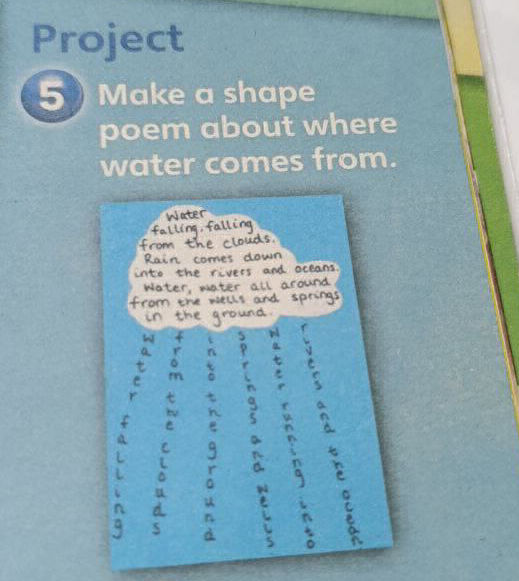 Project
5 Make a shape
poem about where
water comes from.
Water
falling, falling
from the clouds.
Rain comes down
into the rivers and oceans.
Water, water all around
from the wells and springs
in the ground.
Water falling
from the clouds
into the ground
springs and wells
Water running into
rivers and the ocean.